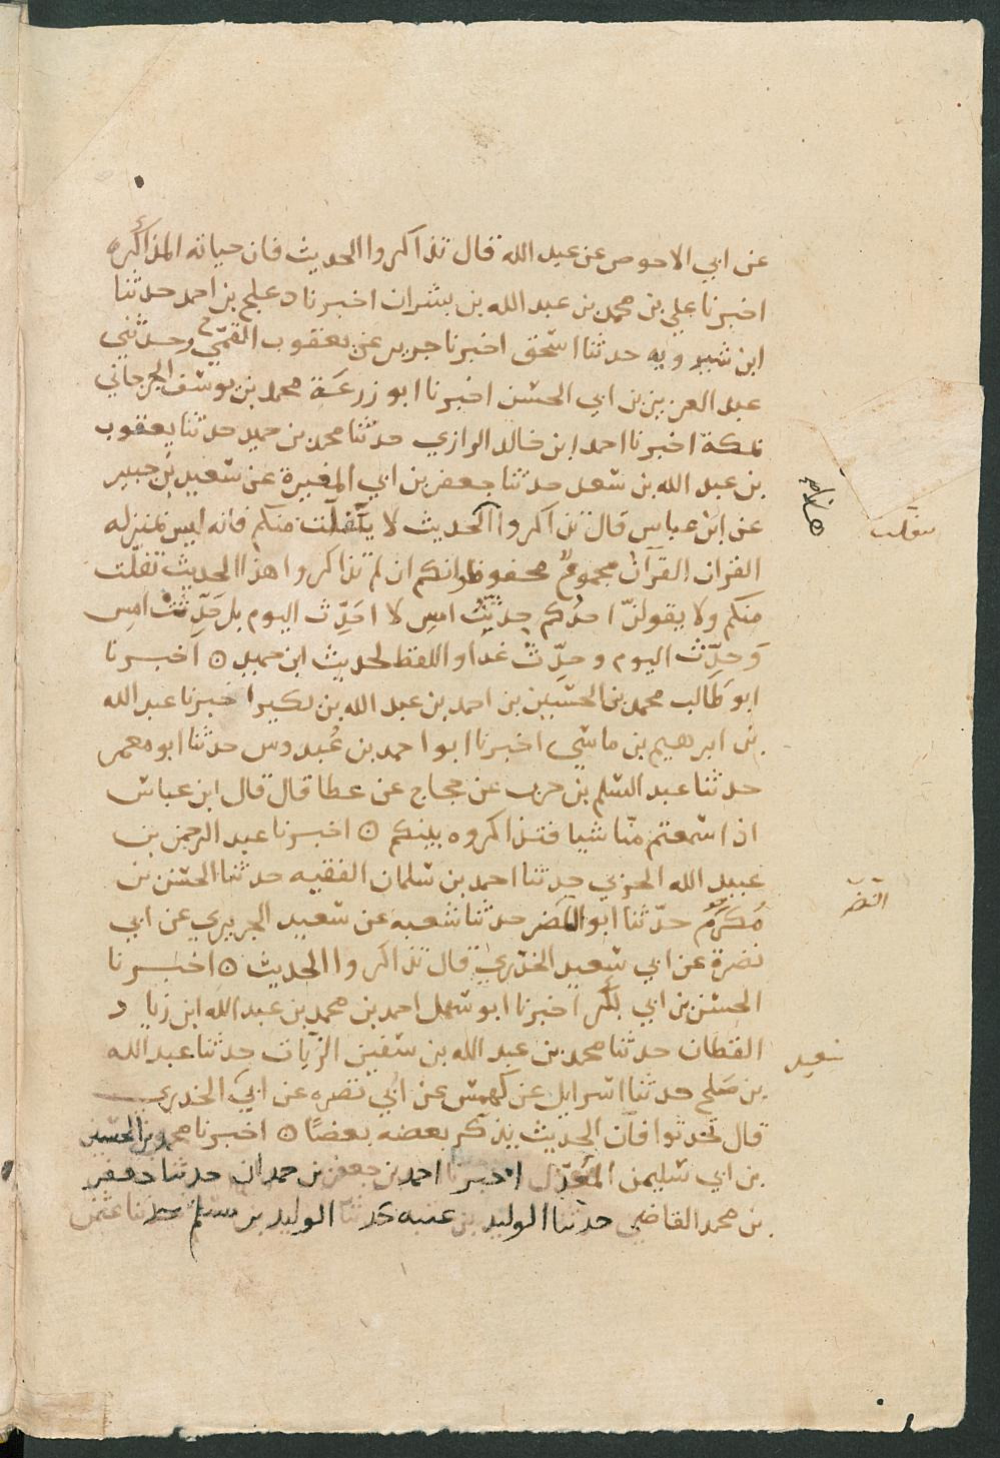 عن ابي الاحوص عن عبد الله قال تذاكروا الحديث فان حياته المذاكره
اخبرنا علي بن محمد بن عبد الله بن بشران اخبرنا دعلج بن احمد حدثنا
ابن شيرويه حدثنا اسحق اخبرنا جرير عن يعقوب القمّي ح وحدثني
عبد العزيز بن ابي الحسن اخبرنا ابو زرعَة محمد بن يوسف الجرجاني
بمكة اخبرنا احمد ابن خالد الرازي حدثنا محمد بن حميد حدثنا يعقوب
بن عبد الله بن سعد حدثنا جعفر بن ابي المغيرة عن سعيد بن جبير
عن ابن عباس قال تذاكروا الحديث لا يتفلّت منكم فانه ليس بمنزله
القران القرآن مجموعٌ محفوظ وانكم ان لم تذاكروا هذا الحديث تفلّت
منكم ولا يقولنّ احدُكم حدّثتُ امسِ لا احَدِّث اليوم بل حَدِّثْ امسِ
وَحدِّث اليوم وحدِّثْ غداً واللفظ لحديث ابن حميد ۞ اخبرنا
ابو طَالب محمد بن الحسين بن احمد بن عبد الله بن بكير اخبرنا عبد الله
بن ابرهيم بن ماسي اخبرنا ابو احمد بن عُبدوس حدثنا ابو معمر
حدثنا عبد السلم بن حرب عن حجاج عن عطا قال قال ابن عباس
اذا سمعتم منّا شيا فتذاكروه بينكم ۞ اخبرنا عبد الرحمن بن
عبيد الله الحربي حدثنا احمد بن سلمان الفقيه حدثنا الحسن بن
مُكرَمٌ حدّثنا ابو النضر حدثنا شعبه عن سعيد الجريري عن ابي
نضرة عن ابي سَعيد الخدري قال تذاكروا الحديث ۞ اخبرنا
الحسن بن ابي بكر اخبرنا ابو سهل احمد بن محمد بن عبد الله ابن زياد
القطان حدثنا محمد بن عبد الله بن سفين الزيات حدثنا عبد الله
بن صَلح حدثنا اسرايل عن كهمس عن ابي نضره عن ابي الخدري
قال تحدثوا فان الحديث يذكّر بعضه بعضًا ۞ اخبرنا محمد بن الحسين
بن ابي سليمن المُعَدّل اخبرنا احمد بن جعفر بن حمدان حدثنا جعفر
بن محمد القاضي حدثنا الوليد بن عتبه حدثنا الوليد بن مسلم حدثنا عثمن
النضر
سعيد